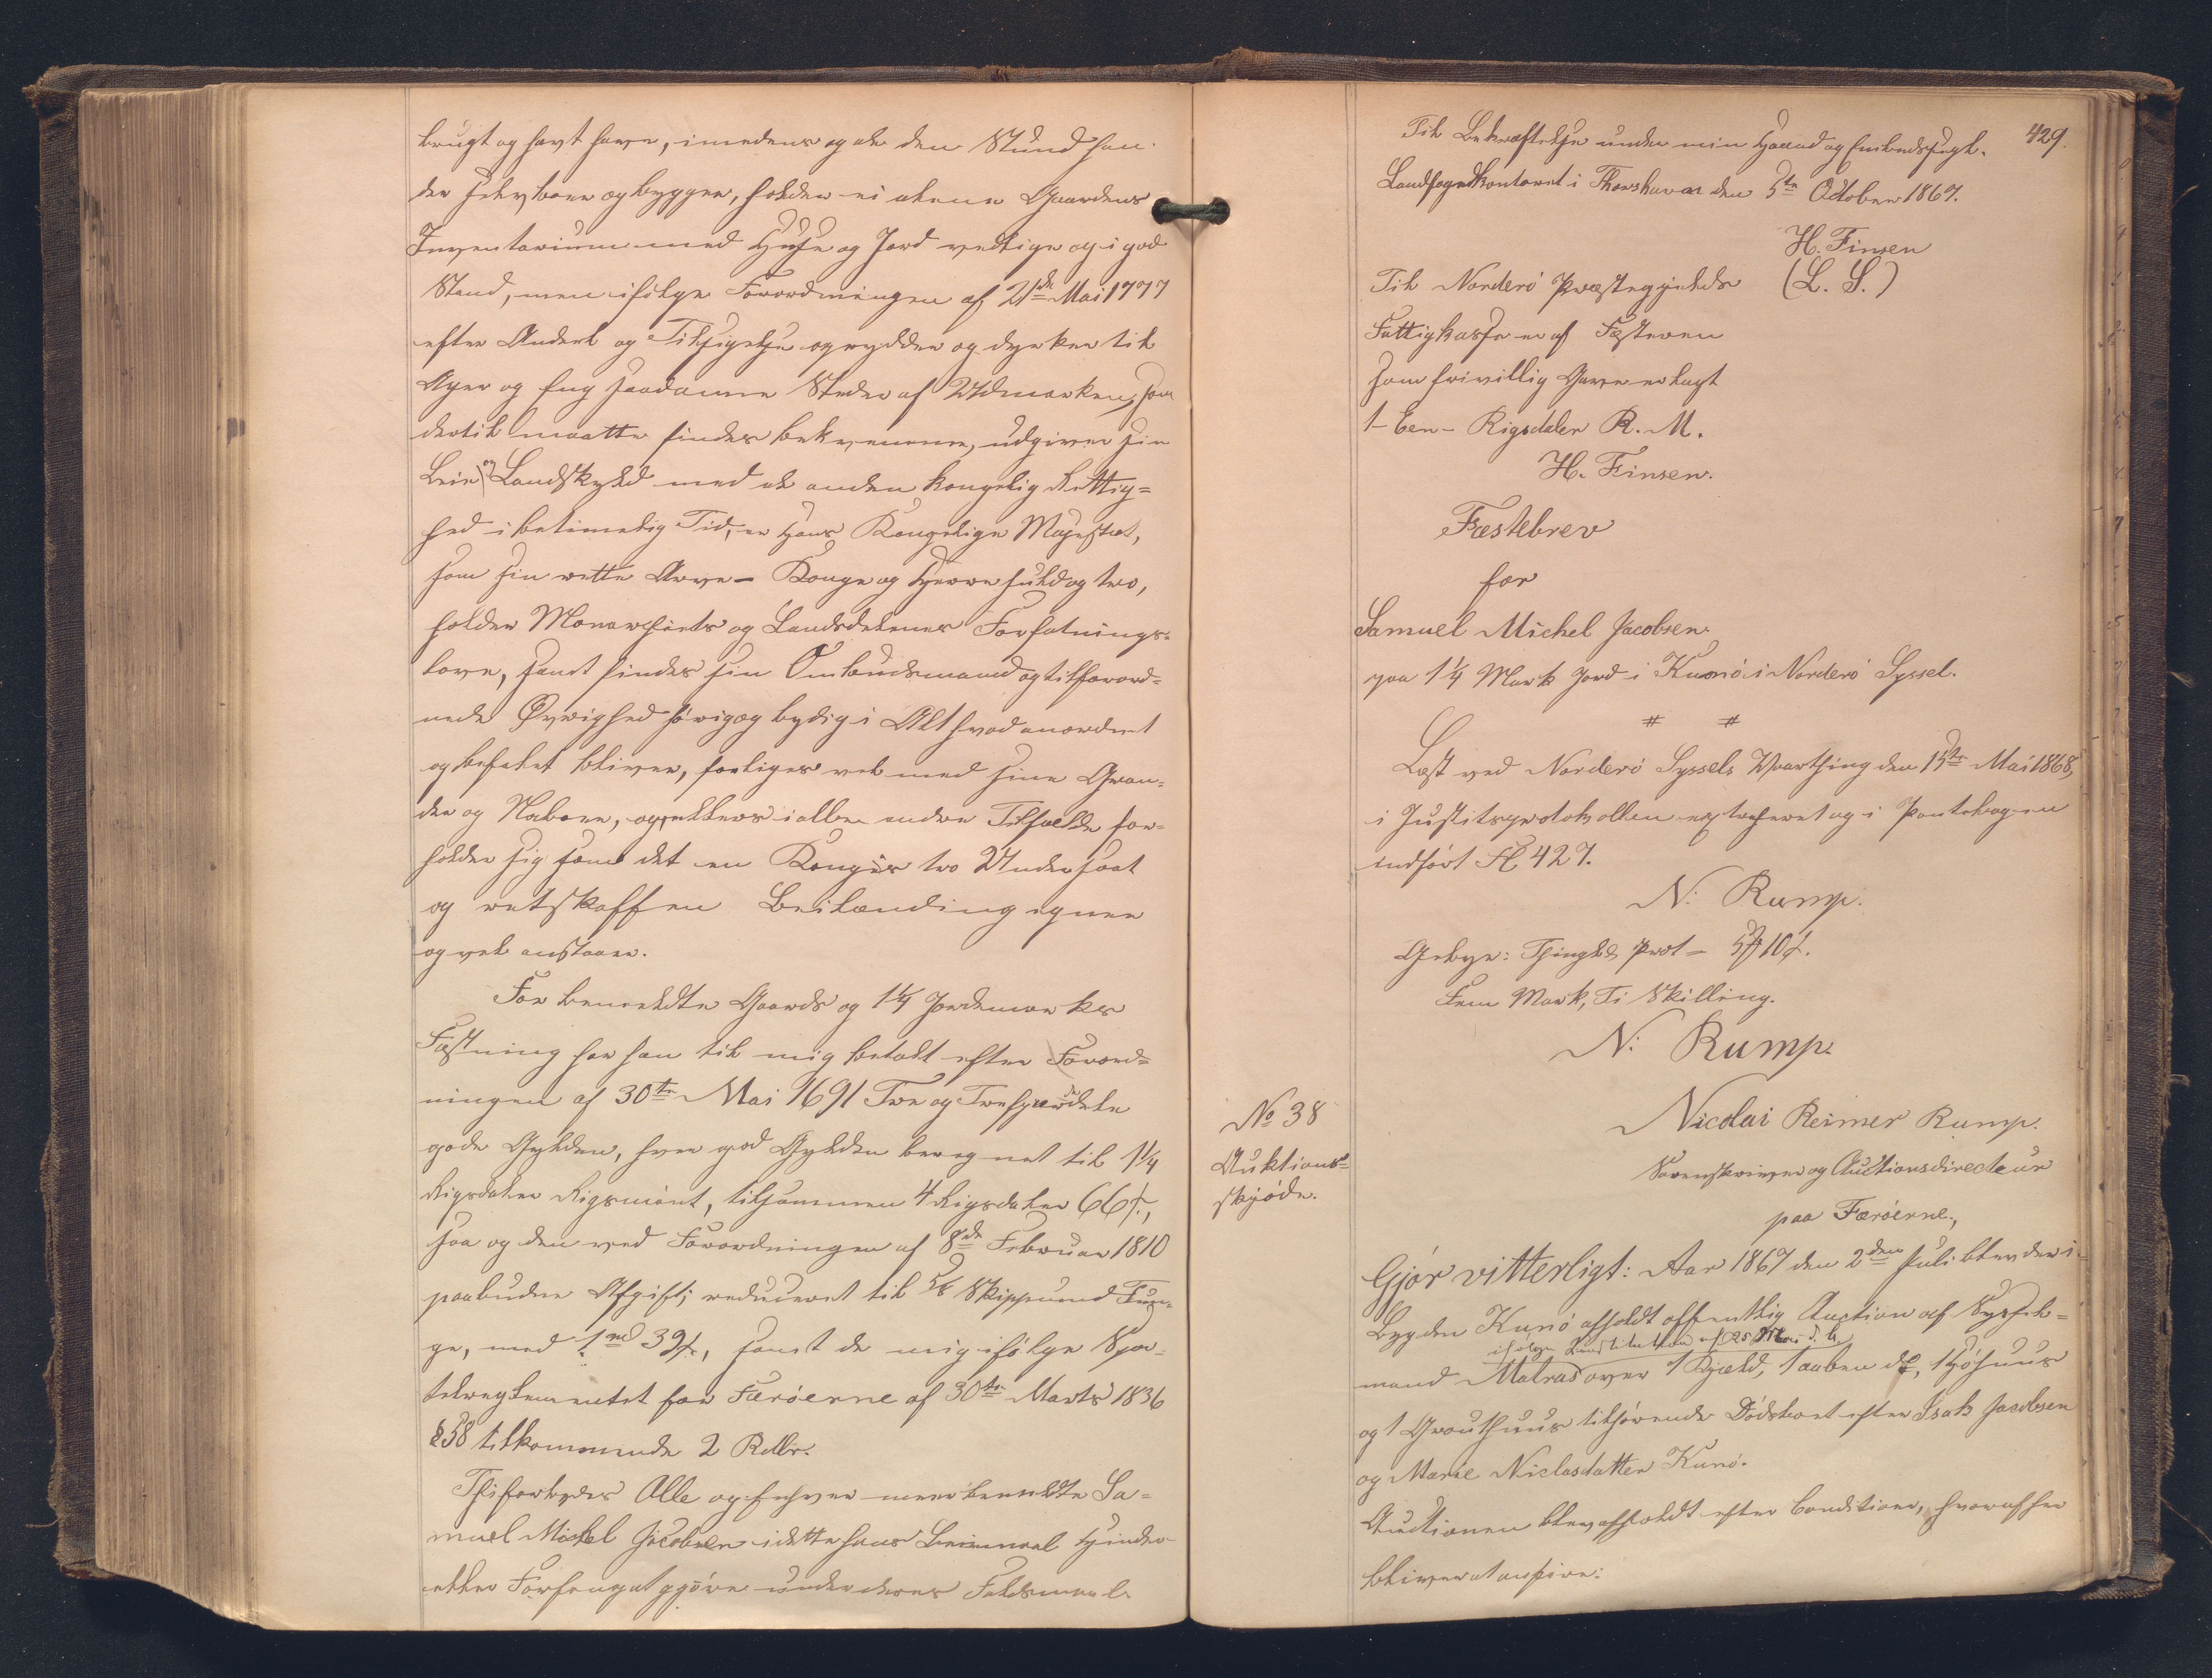 brugt og havt have, imedens og al den Stund han
der selv boer og bygger, holder ei alene Gaardens
Inventarium med Huse og Jord vedlige og i god
Stand, men ifölge Forordningen af 21de Mai 1777
efter Andeel og Tilsigelse oprydder og dyrker til
Ager og Eng saadanne Steder af Udmarken, som
dertil maatte findes beqvemme, udgiver sin
Leie og Landskyld med al anden kongelig Rettig=
hed i betimelig Tid, er Hans Kongelige Majestæt,
som sin rette Arve- Konge og Herre huld og tro,
holder Monarchiets og Landsdelenes Forfatnings-
love, samt findes sin Ombudsmand og tilforord=
nede Øvrighed hörig og lydig i Alt hvad anordnet
og befalet bliver, forliges vel med sine Gran=
der og Naboer, og ellers i alle andre Tilfælde for=
holder sig som det en Kongens tro Undersaat
og retskaffen Leilænding egner
og vel anstaaer.
For bemeldte Gaards og 1¼ Jordemarkes
Fæstning har han til mig betalt efter Forord=
ningen af 30te Mai 1691 Tre og Trefjerdedele
gode Gylden, hver god Gylden beregnet til 1¼
Rigsdaler Rigsmönt, tilsammen 4 Rigsdaler 66 ß,
saa og den ved Forordningen af 8de Februar 1810
paabudne Afgift, reduceret til 5/6 Skippund Tun-
ge, med 1 rd 39 ß, samt de mig ifölge Spor-
telreglementet for Færöerne af 30te Marts 1836
§ 58 tilkommende 2 Rdlr.
Thi forbydes Alle og Enhver meerbemeldte Sa=
muel Michel Jacobsen i dette hans Leiemaal Hinder
eller Forfang at gjöre under deres Faldsmaal.
429.
Til Bekræftelse under min Haand og Embedssegl.
Landfogedkontoret i Thorshavn den 5te October 1867.
H. Finsen
(L. S.)
Til Norderö Præstegjelds
Fattigkasse er af Fæsteren
som frivillig Gave erlagt
1- Een- Rigsdaler R. M.
H. Finsen.
Fæstebrev
for
Samuel Michel Jacobsen.
paa 1¼ Mark Jord i Kunö i Norderö Syssel.
# #
Læst ved Norderö Syssels Vaarthing den 15de Mai 1868,
i Justitsprotokollen extraheret og i Pantebogen
indfört Fl 427.
N: Rump.
Gebyr: Thingl & Prot - 5 ₥ 10 ß.
Fem Mark, Ti Skilling.
N: Rump.
No 38
Auktions=
skjöde.
Nicolai Reimer Rump.
Sorenskriver og Auctionsdirecteur
paa Færöerne,
Gjör vitterligt: Aar 1867 den 2den Juli blev der i
Bygden Kunö afholdt offentlig Auction af Syssel=
ifölge Constitution af 25 Mai d. A.
mand Matras over 1 Kjæld, 1 aaben do, 1 Höhuus
og 1 Grouthuus tilhörende Dödsboet efter Isak Jacobsen
og Marie Niclasdatter Kunö.
Auctionen blev afholdt efter Conditioner, hvoraf her
bliver at anföre: